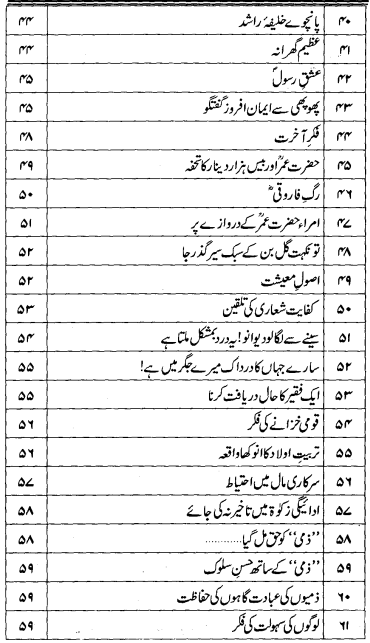 ۴۰ پانچوے خلیفۂ راشد ۴۴
۴۱ عظیم گھرانہ ۴۴
۴۲ عشقِ رسولؐ ۴۵
۴۳ پھوپھی سے ایمان افروز گفتگو ۴۵
۴۴ فکرِ آخرت ۴۸
۴۵ حضرت عمرؒ اور بیس ہزار دینار کا تحفہ ۴۹
۴۶ رگِ فاروقیؓ ۵۰
۴۷ امراء حضرت عمرؒ کے دروازے پر ۵۱
۴۸ تو نکہت گل بن کے سبک سیر گذر جا ۵۲
۴۹ اصولِ معیشت ۵۲
۵۰ کفایت شعاری کی تلقین ۵۳
۵۱ سینے سے لگالو دیوانو! یہ درد بمشکل ملتا ہے ۵۴
۵۲ سارے جہاں کا درد اک میرے جگر میں ہے! ۵۵
۵۳ ایک فقیر کا حال دریافت کرنا ۵۵
۵۴ قومی خزانے کی فکر ۵۶
۵۵ تربیتِ اولاد کا انوکھا واقعہ ۵۶
۵۶ سرکاری مال میں احتیاط ۵۷
۵۷ ادائیگی زکوٰۃ میں تاخیر نہ کی جائے ۵۸
۵۸ ”ذمی“ کو حق مل گیا............ ۵۸
۵۹ ”ذمی“ کے ساتھ حسنِ سلوک ۵۹
۶۰ ذمیوں کی عبادت گاہوں کی حفاظت ۵۹
۶۱ لوگوں کی سہولت کی فکر ۵۹